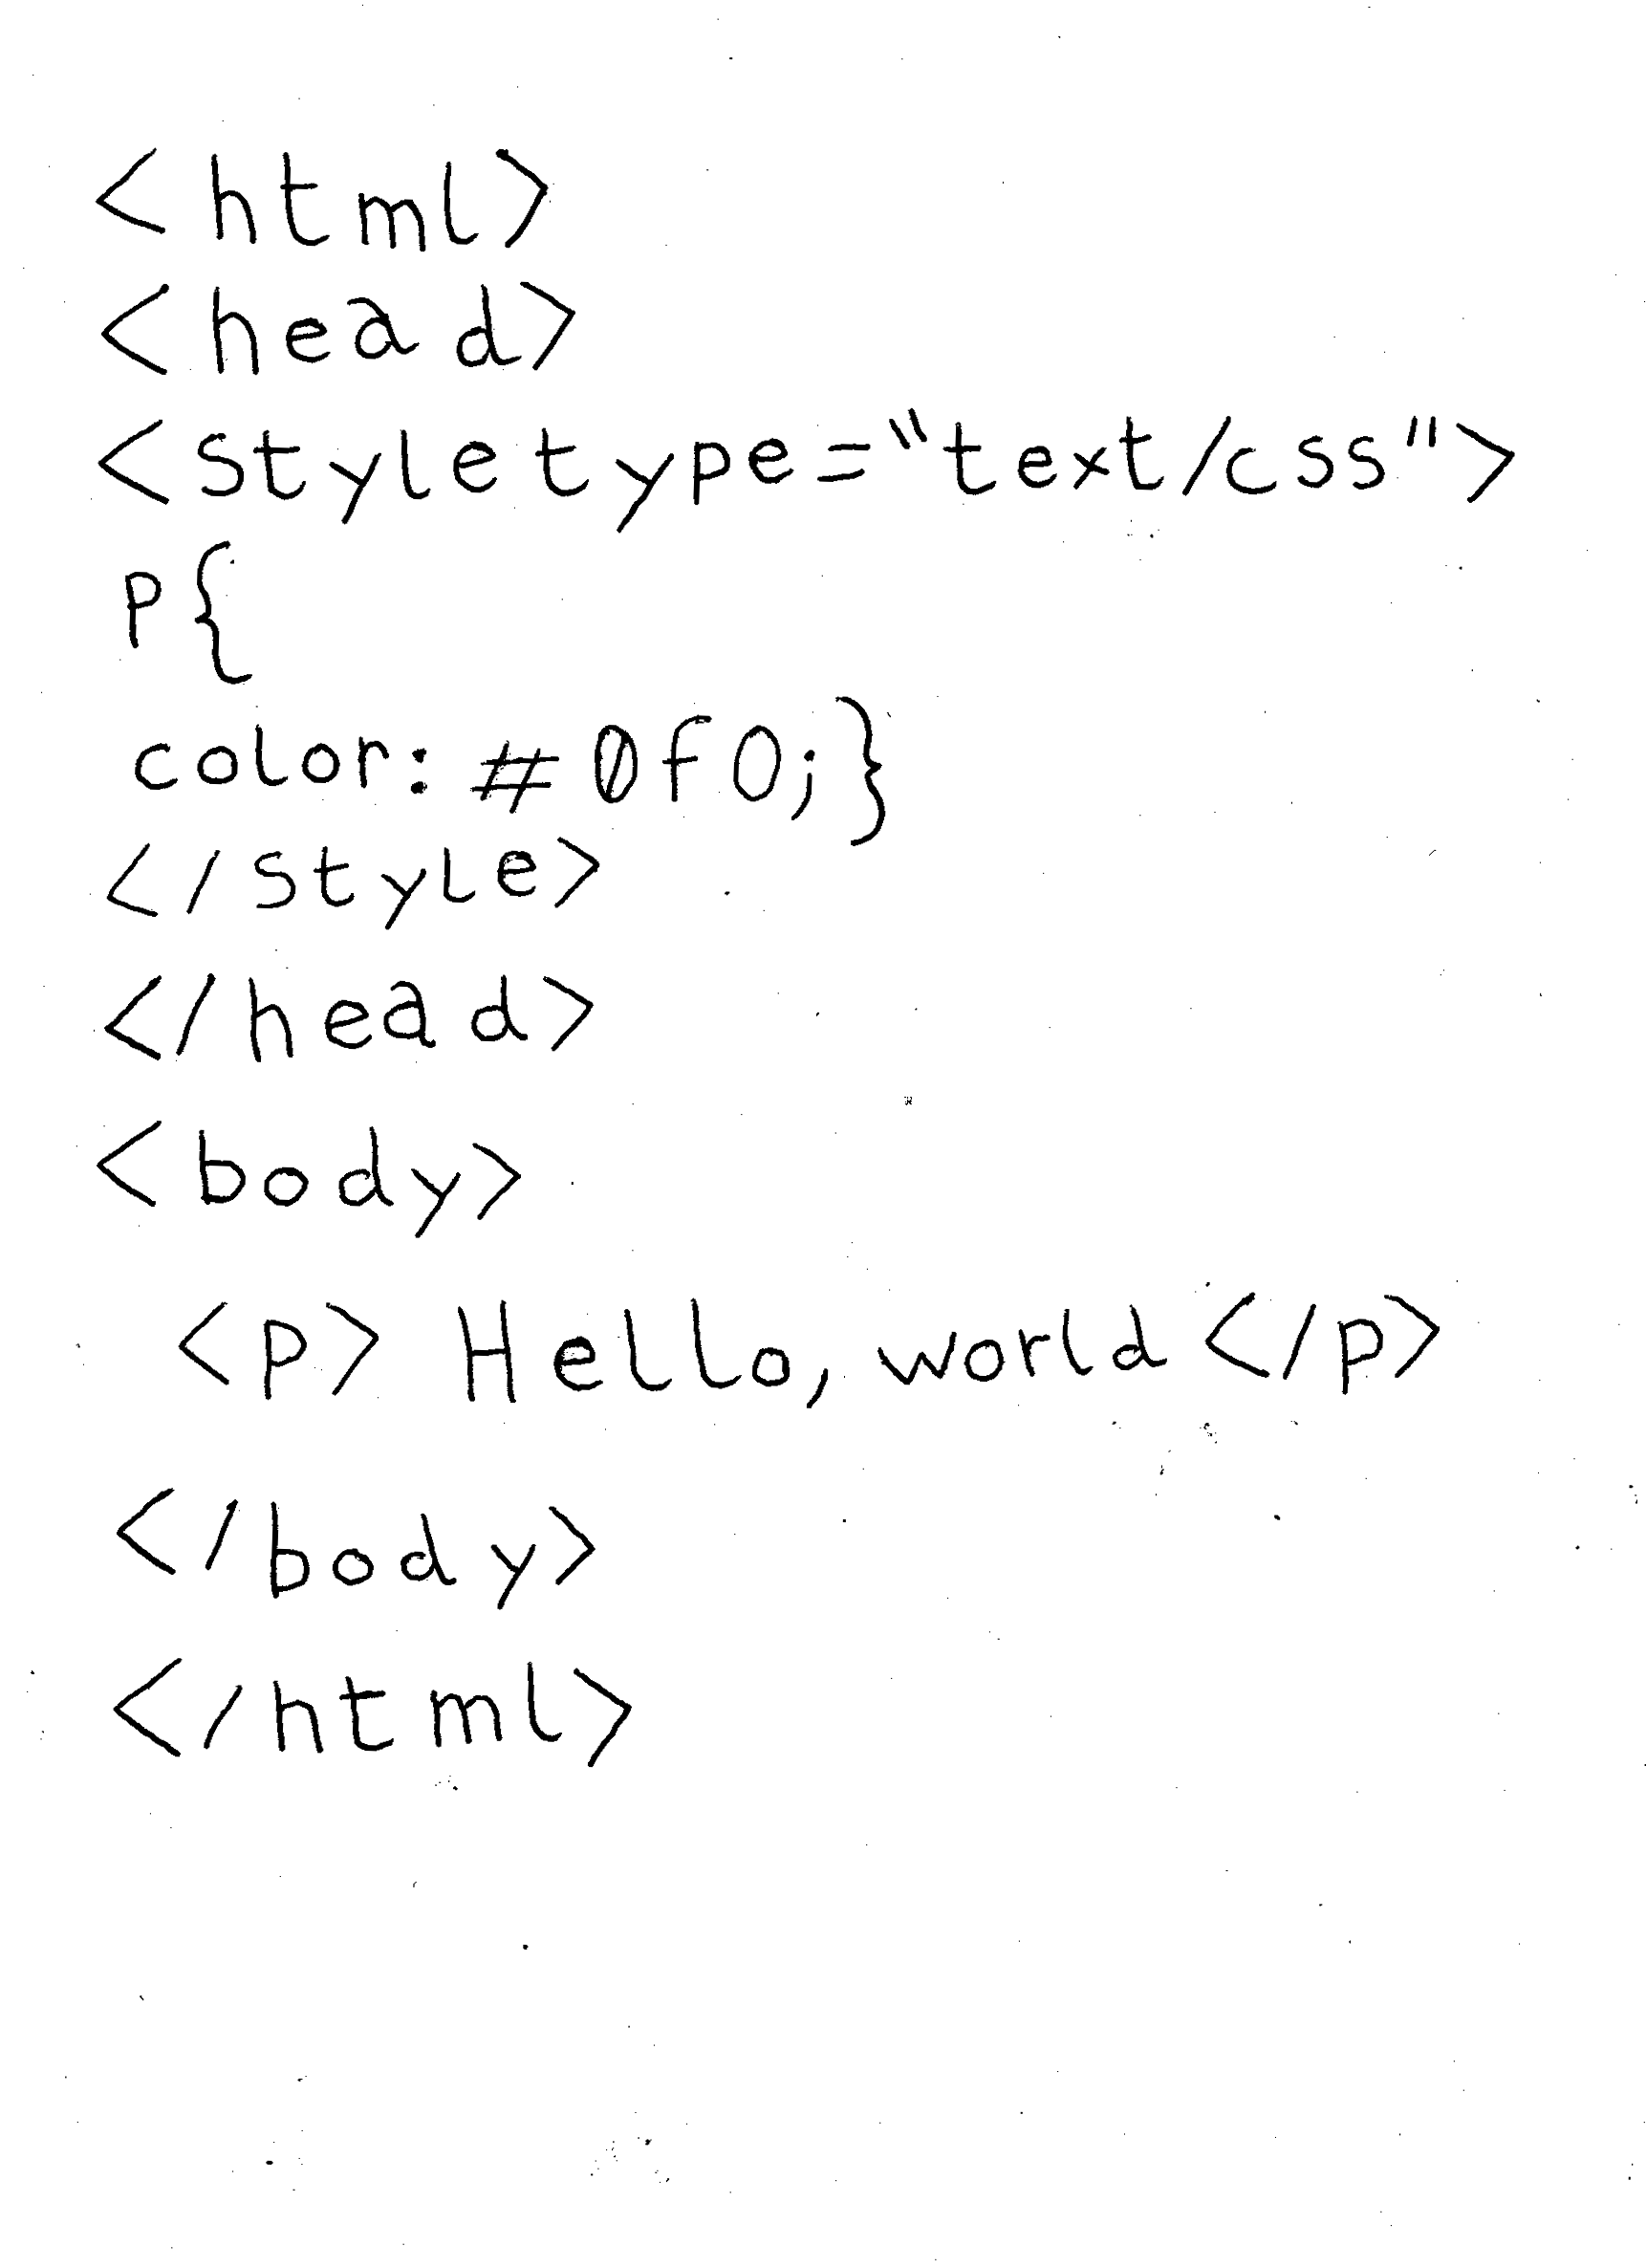 <html>
<head>
<style type="text/css">
p{
color: #0f0;}
</style>
</head>
<body>
<p> Hello, world </p>
</body>
</html>